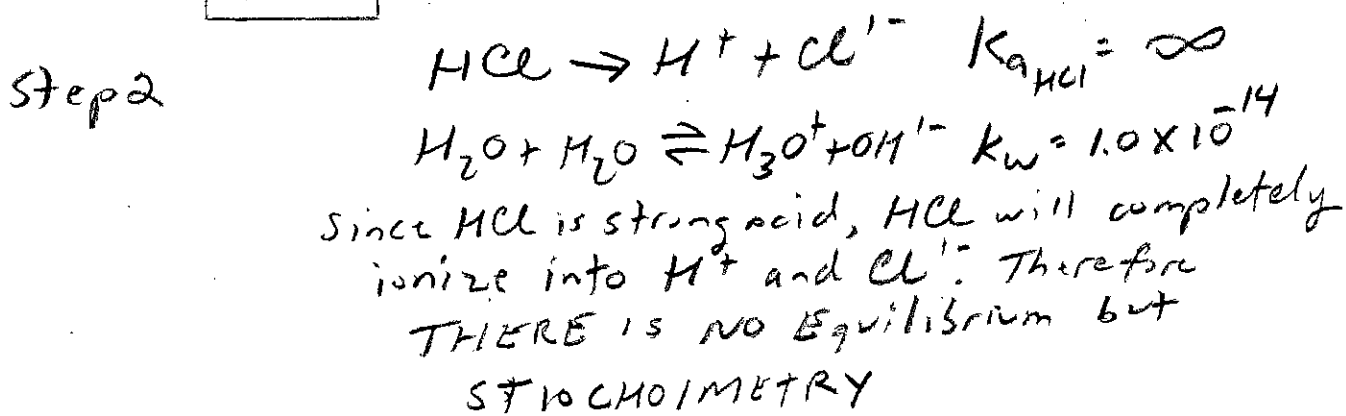 Step 2
HCl → H⁺ + Cl¹⁻ Ka HCl = ∞
H₂O + H₂O ⇌ H₃O⁺ + OH¹⁻ Kw = 1.0 X 10⁻¹⁴
Since HCl is strong acid, HCl will completely
ionize into H⁺ and Cl¹⁻. Therefore
THERE IS NO Equilibrium but
STIOCHOIMETRY